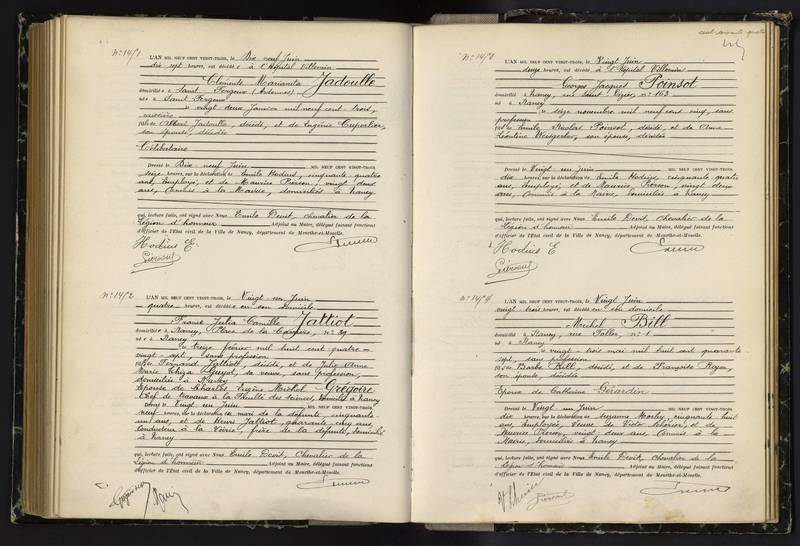 N° 1471
L'AN MIL NEUF CENT VINGT-TROIS, le Dix neuf Juin
dix sept heures, est décédée à l'Hôpital Villemin
Clémente Marianita Jadoulle
domiciliée à Saint Fergeux (Ardennes)
née à Saint Fergeux
le vingt deux Janvier mil neuf cent trois,
fille de Albert Jadoulle, décédé, et de Eugénie
son épouse, décédée
Célibataire
Dressé le Dix neuf Juin MIL NEUF CENT VINGT-TROIS
seize heures, sur la déclaration de Emile Hodius, cinquante quatre
ans, employé, et de Maurice Pierson, vingt deux
ans, Commis à la Mairie, domiciliés à Nancy
qui, lecture faite, ont signé avec Nous Emile Devit, chevalier de la
Légion d'honneur Adjoint au Maire, délégué faisant fonctions
d'Officier de l'État civil de la Ville de Nancy, département de Meurthe-et-Moselle.
Hodius E.
N° 1472
L'AN MIL NEUF CENT VINGT-TROIS, le Vingt un Juin
quatre heures, est décédée en son domicile
Jeanne Julia Camille Jattiot
domiciliée à Nancy, Place de la Carrière, n° 39
née à Nancy
le treize février mil huit cent quatre-
vingt-sept, sans profession
fille de Fernand Jattiot, décédé, et de Julie Anne
Marie Guyot, sa veuve, sans profession,
domiciliée à Nancy
Epouse de Charles Eugène Michel Grégoire
Chef de travaux à la Faculté des Sciences, domicilié à Nancy
Dressé le Vingt un Juin MIL NEUF CENT VINGT-TROIS
neuf heures, sur la déclaration du mari de la défunte, cinquante
un ans, et de Henri Jattiot, quarante cinq ans,
Conducteur à la Voirie, frère de la défunte, domiciliés
à Nancy
qui, lecture faite, ont signé avec Nous Emile Devit, Chevalier de la
Légion d'honneur Adjoint au Maire, délégué faisant fonctions
d'Officier de l'État civil de la Ville de Nancy, département de Meurthe-et-Moselle.
cent soixante quatre
N° 1473
L'AN MIL NEUF CENT VINGT-TROIS, le Vingt Juin
douze heures, est décédé à l'Hôpital Villemin
Georges Jacques Poinsot
domicilié à Nancy, rue n° 153
né à Nancy
le seize novembre mil neuf cent cinq, sans
profession
fils de Emile Nicolas Poinsot, décédé, et de Anne
Léontine Weisgerber, son épouse, décédée
Dressé le Vingt un Juin MIL NEUF CENT VINGT-TROIS
dix heures, sur la déclaration de Emile Hodius, cinquante quatre
ans, employé, et de Maurice Pierson, vingt deux
ans, Commis à la Mairie, domiciliés à Nancy
qui, lecture faite, ont signé avec Nous Emile Devit, Chevalier de la
Légion d'honneur Adjoint au Maire, délégué faisant fonctions
d'Officier de l'État civil de la Ville de Nancy, département de Meurthe-et-Moselle.
Hodius E
N° 1474
L'AN MIL NEUF CENT VINGT-TROIS, le Vingt Juin
vingt trois heures, est décédé en son domicile
Michel Bill
domicilié à Nancy, rue n° 1
né à Nancy
le vingt-trois mai mil huit cent quarante
sept, sans profession
fils de Barbe Bill, décédé, et de Françoise
son épouse, décédée
Epoux de Catherine Gérardin
Dressé le Vingt un Juin MIL NEUF CENT VINGT-TROIS
dix heures, sur la déclaration de Suzanne cinquante huit
ans, employée, veuve de Victor et de
Maurice Pierson, vingt deux ans, Commis à la
Mairie, domiciliés à Nancy
qui, lecture faite, ont signé avec Nous Emile Devit, chevalier de la
Légion d'honneur Adjoint au Maire, délégué faisant fonctions
d'Officier de l'État civil de la Ville de Nancy, département de Meurthe-et-Moselle.